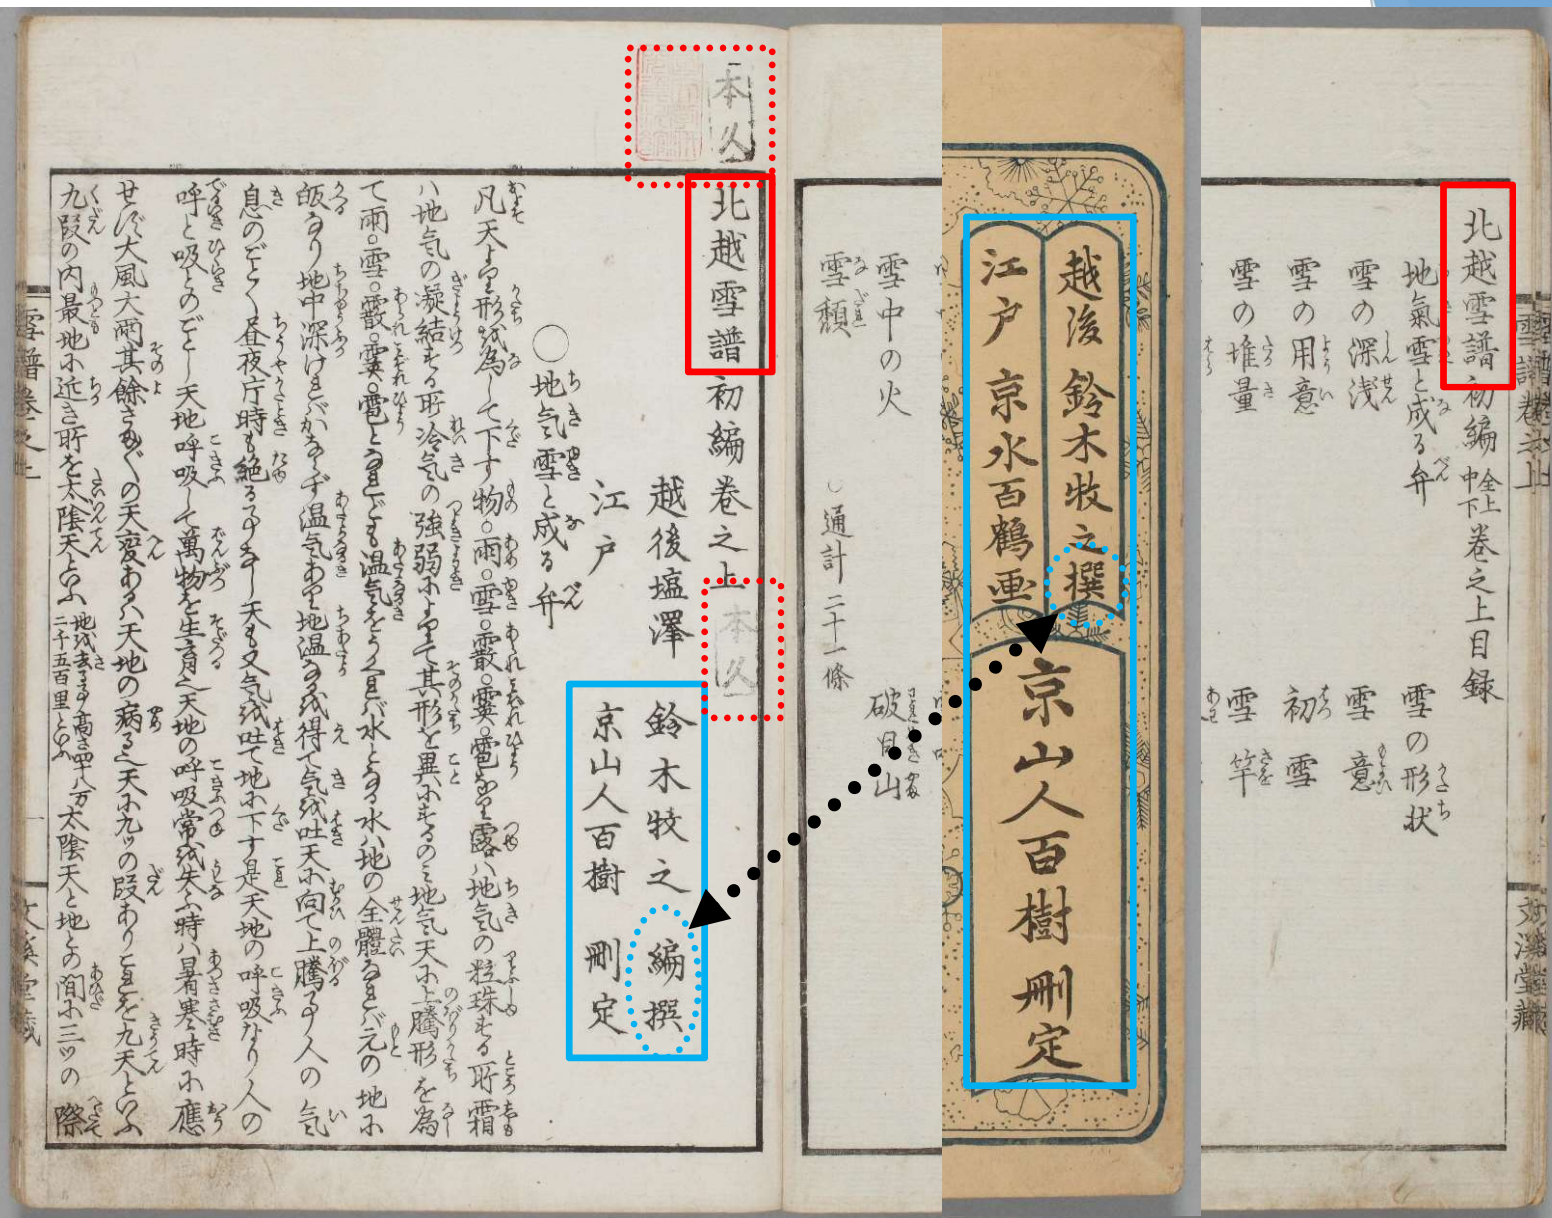 北越雪譜初編 全上中下 巻之上目録
地氣雪と成る弁 雪の形状
雪の深浅 雪意
雪の用意 初雪
雪の堆量 雪竿
越後 鈴木牧之撰
江戸 京水百鶴画
京山人百樹刪定
雪中の火 破目山
雪頽
○通計二十一條
本久
北越雪譜初編巻之上
本久
越後塩澤 鈴木牧之 編撰
江戸 京山人百樹 刪定
○地気雪と成る弁
凡天より形を為して下す物○雨○雪○霰○霙○雹なり露ハ地気の粒珠する所霜
ハ地気の凝結する所冷気の強弱によりて其形を異にするのミ地気天に上騰形を為
て雨○雪○霰○霙○雹となれども温気をうくれバ水となる水ハ地の全體なれバ元の地に
皈なり地中深けれバかならず温気あり地温なるを得て気を吐天に向て上騰事人の気
息のごとく昼夜片時も絶る事なし天も又気を吐て地に下す是天地の呼吸なり人の
呼と吸とのごとし天地呼吸して萬物を生育也天地の呼吸常を失ふ時ハ暑寒時に應
せず大風大雨其餘さま〴〵の天変あるハ天地の病る也天に九ツの段ありこれを九天といふ
九段の内最地に近き所を太陰天といふ 地を去る事高さ四十八万二千五百里といふ 太陰天と地との間に三ツの際
雪譜巻之上
文溪堂藏